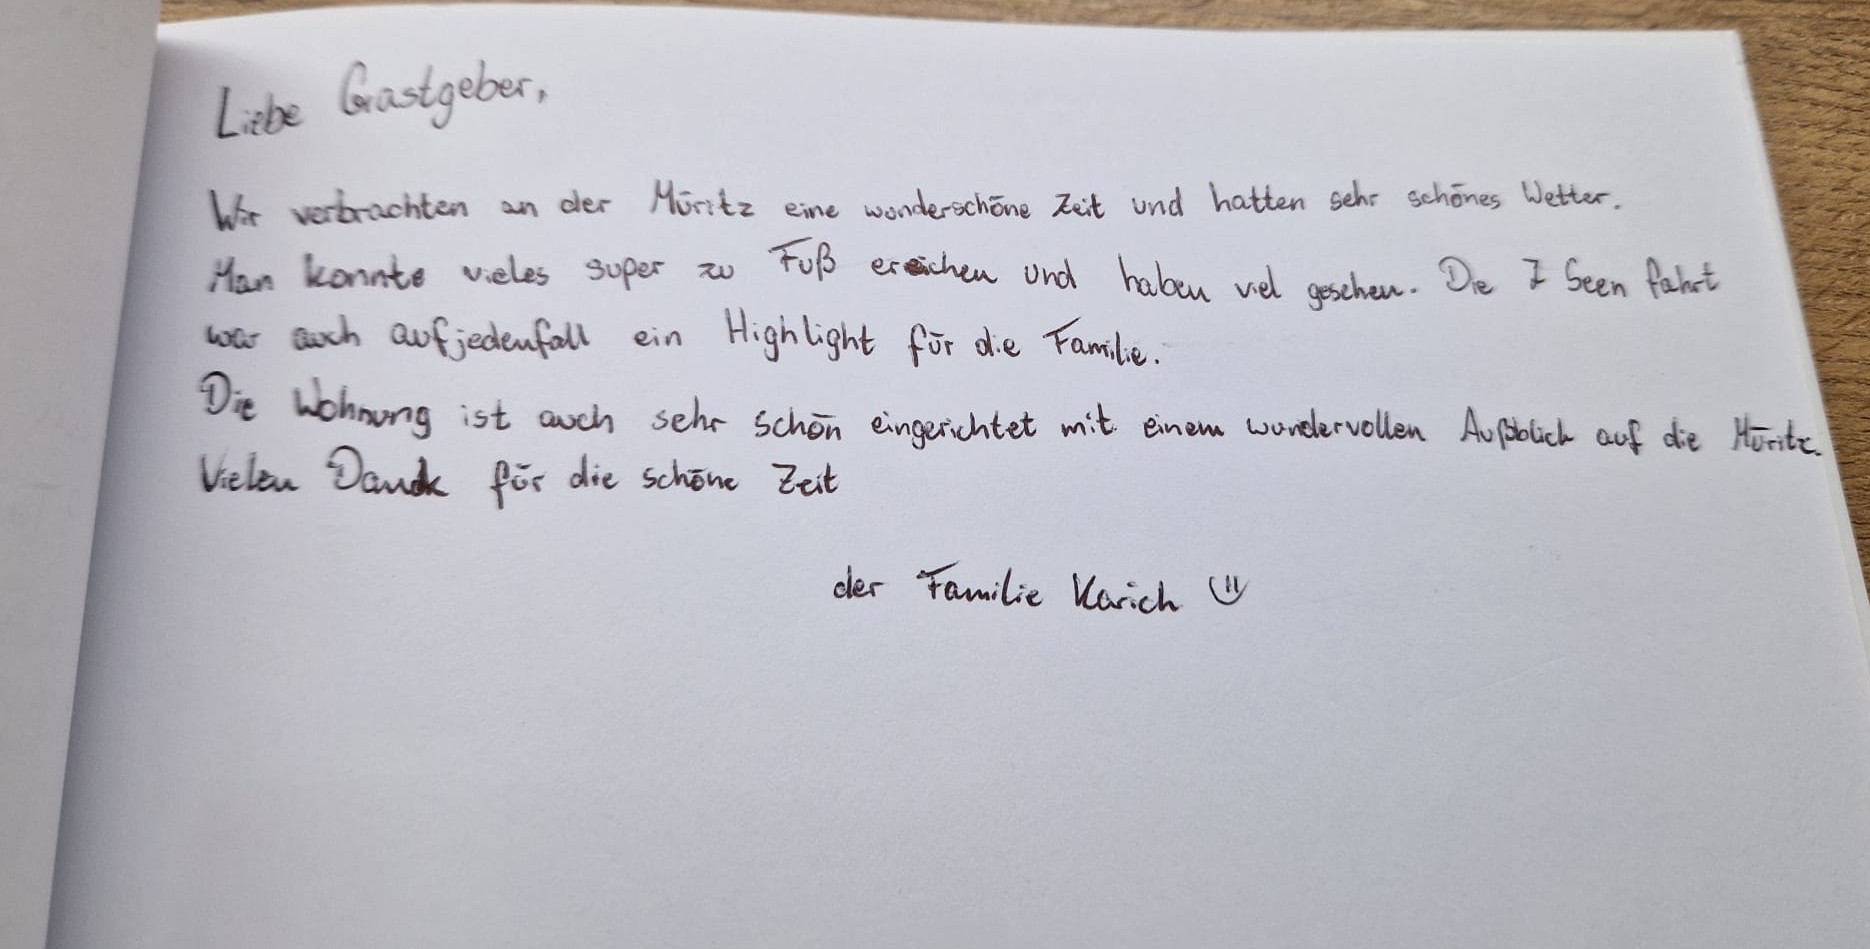 Liebe Gastgeber,
Wir verbrachten an der Müritz eine wunderschöne Zeit und hatten sehr schönes Wetter.
Man konnte vieles super zu Fuß ereichen und haben viel gesehen. Die 7 Seen fahrt
war auch aufjedenfall ein Highlight für die Familie.
Die Wohnung ist auch sehr schön eingerichtet mit einem wundervollen Außblick auf die Müritz.
Vielen Dank für die schöne Zeit
der Familie Karich